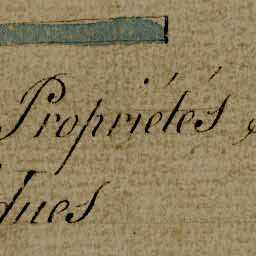 Propriétés
dues